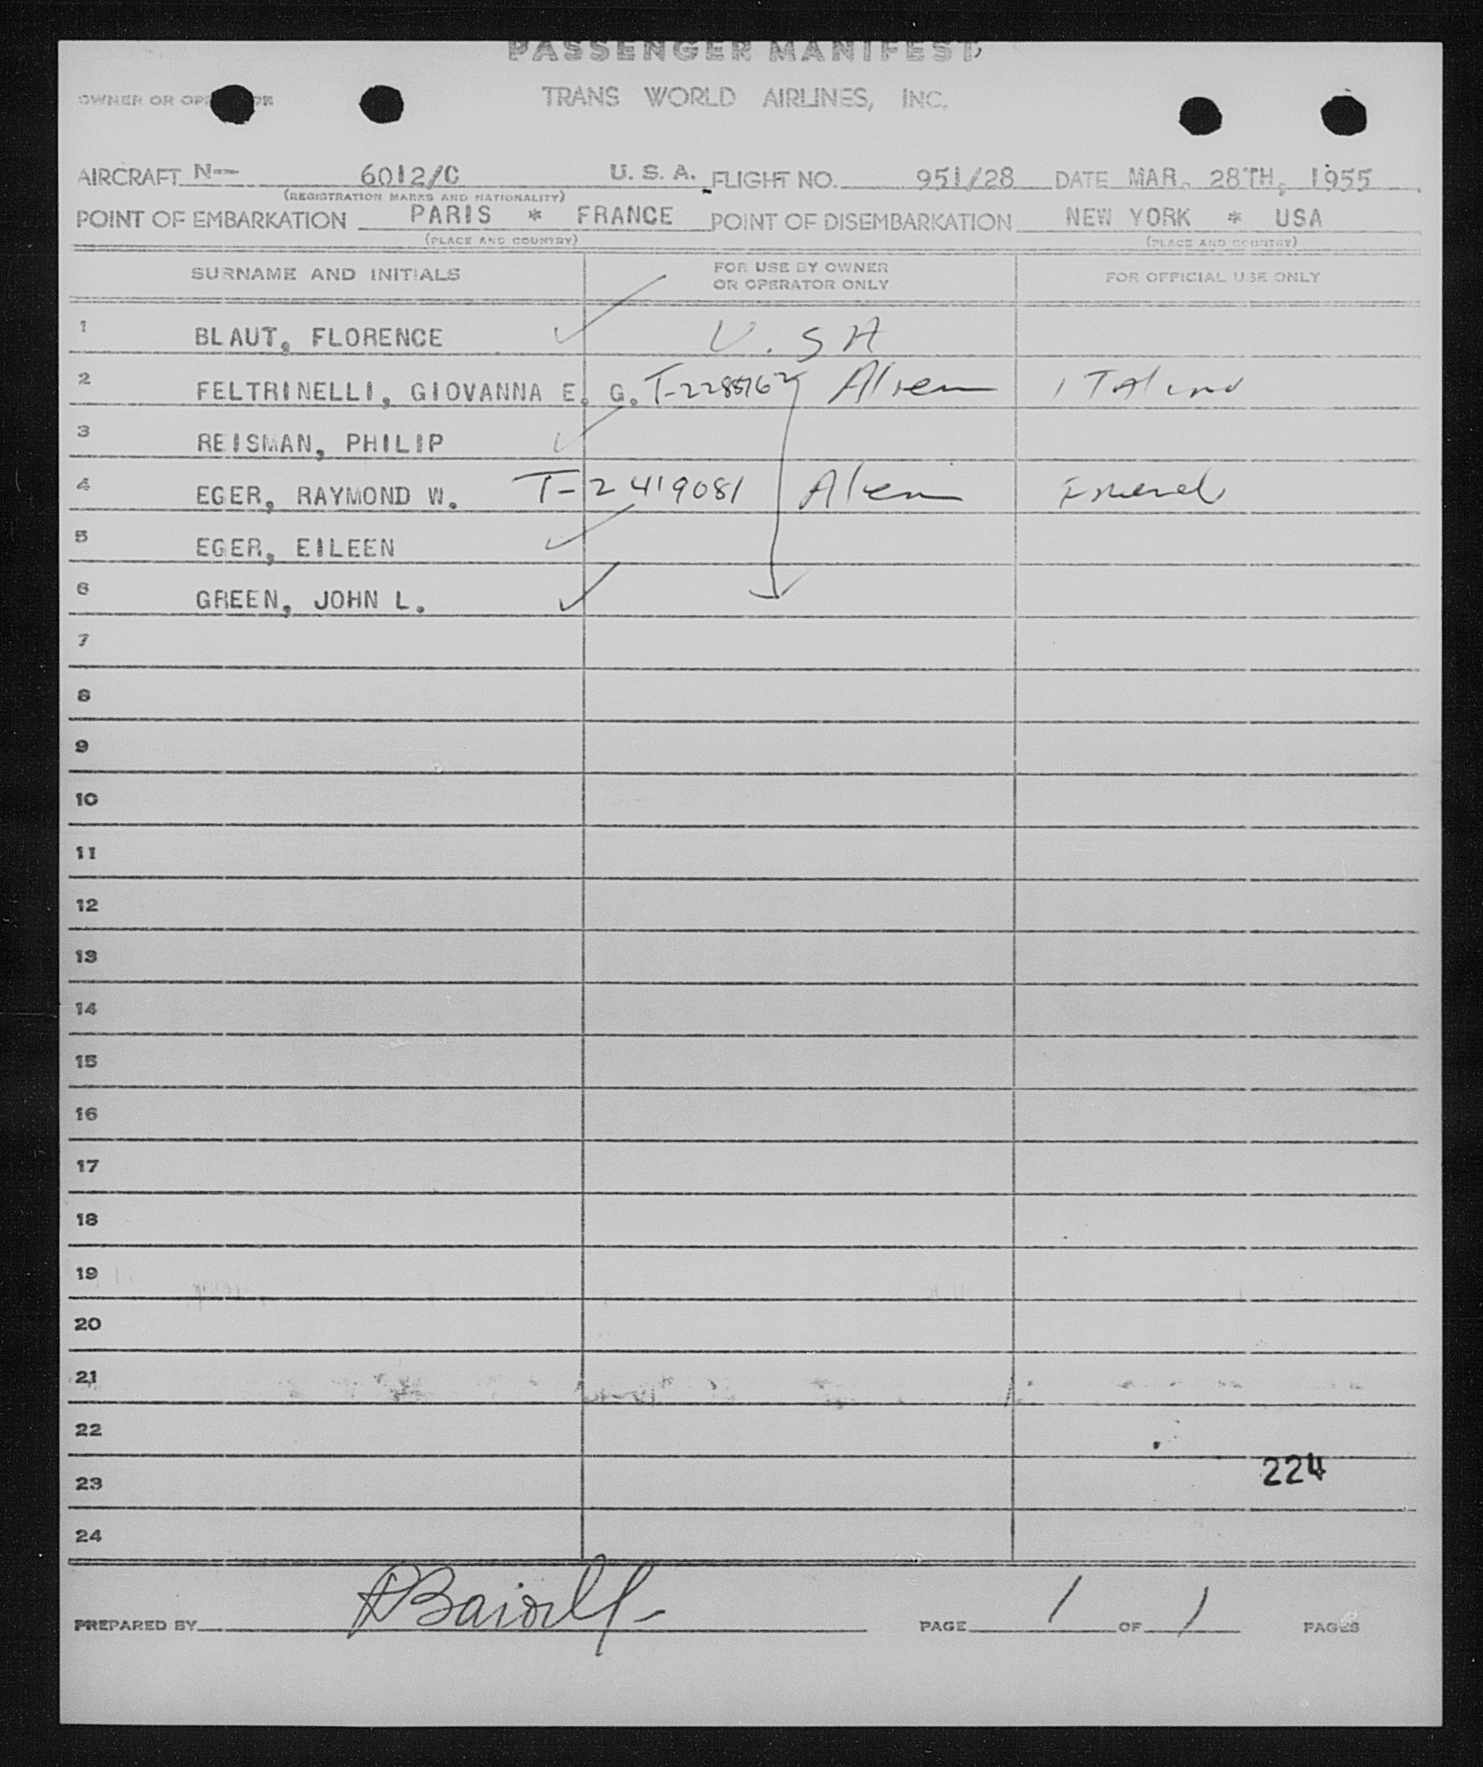 PASSENGER MANIFEST
OWNER OR TRANS WORLD AIRLINES, INC.
AIRCRAFT N-- 6012/C U. S. A. FLIGHT NO. 951/28 DATE MAR. 28TH, 1955
(REGISTRATION MARKS AND NATIONALITY)
POINT OF EMBARKATION PARIS * FRANCE POINT OF DISEMBARKATION NEW YORK * USA
(PLACE AND COUNTRY) (PLACE AND COUNTRY)
SURNAME AND INITIALS FOR USE BY OWNER OR OPERATOR ONLY FOR OFFICIAL USE ONLY
1 BLAUT, FLORENCE U.SA
2 FELTRINELLI, GIOVANNA E. G. Alien
3 REISMAN, PHILIP
4 EGER, RAYMOND W. T-2419081 Alien
5 EGER, EILEEN
6 GREEN, JOHN L.
7
8
9
10
11
12
13
14
15
16
17
18
19
20
21
22
23 224
24
PREPARED BY PAGE 1 OF 1 PAGES